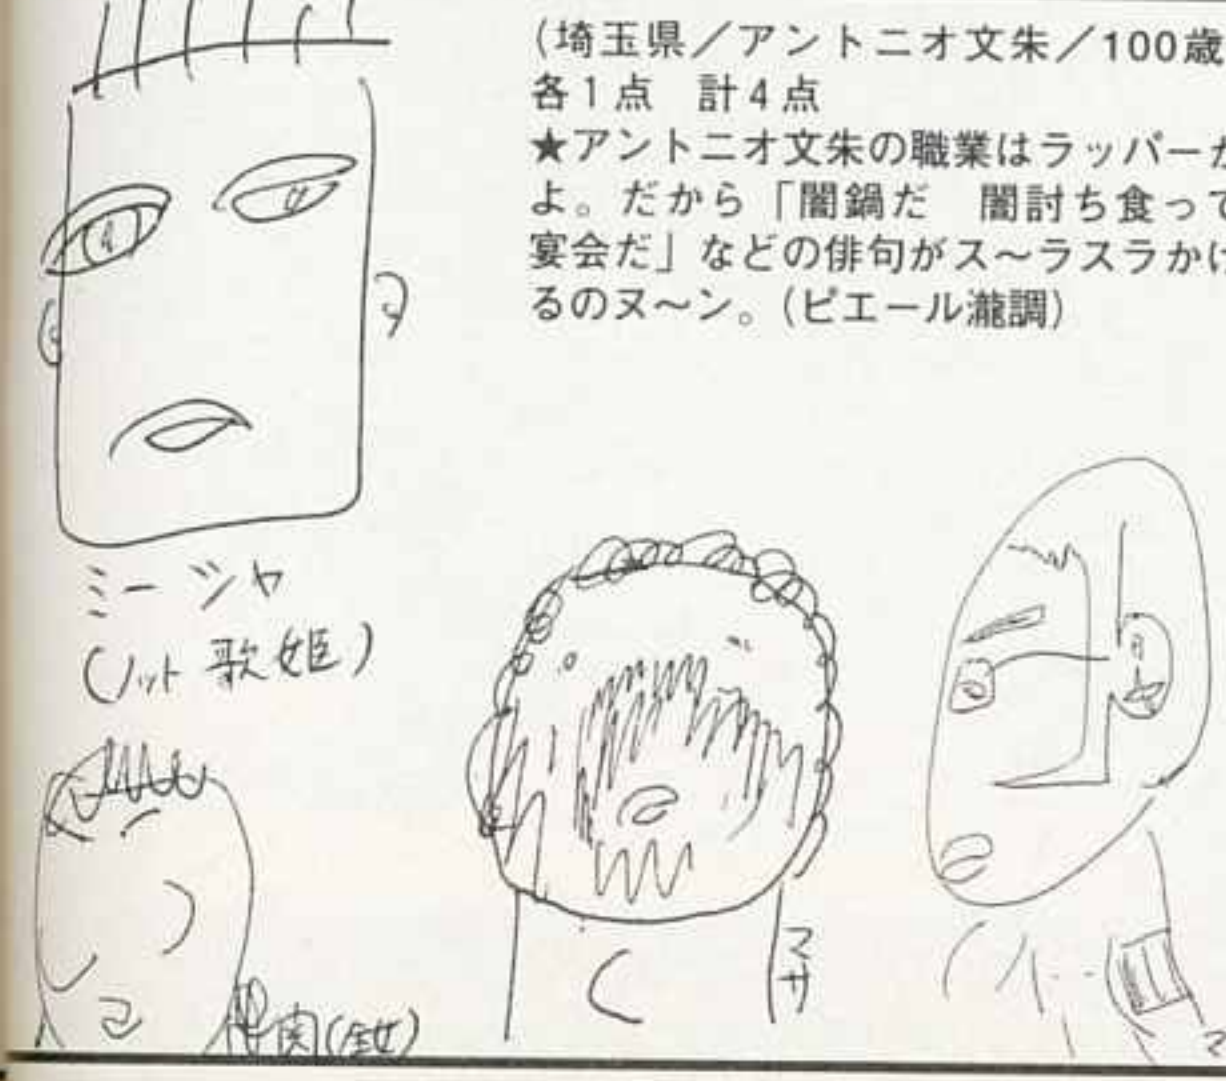 (埼玉県／アントニオ文朱／100歳
各1点　計4点
★アントニオ文朱の職業はラッパーか
よ。だから「闇鍋だ　闇討ち食って
宴会だ」などの俳句がス～ラスラかけ
るのヌ～ン。(ピエール瀧調)
ミーシャ
(ノット歌姫)
マサ
関(全女)